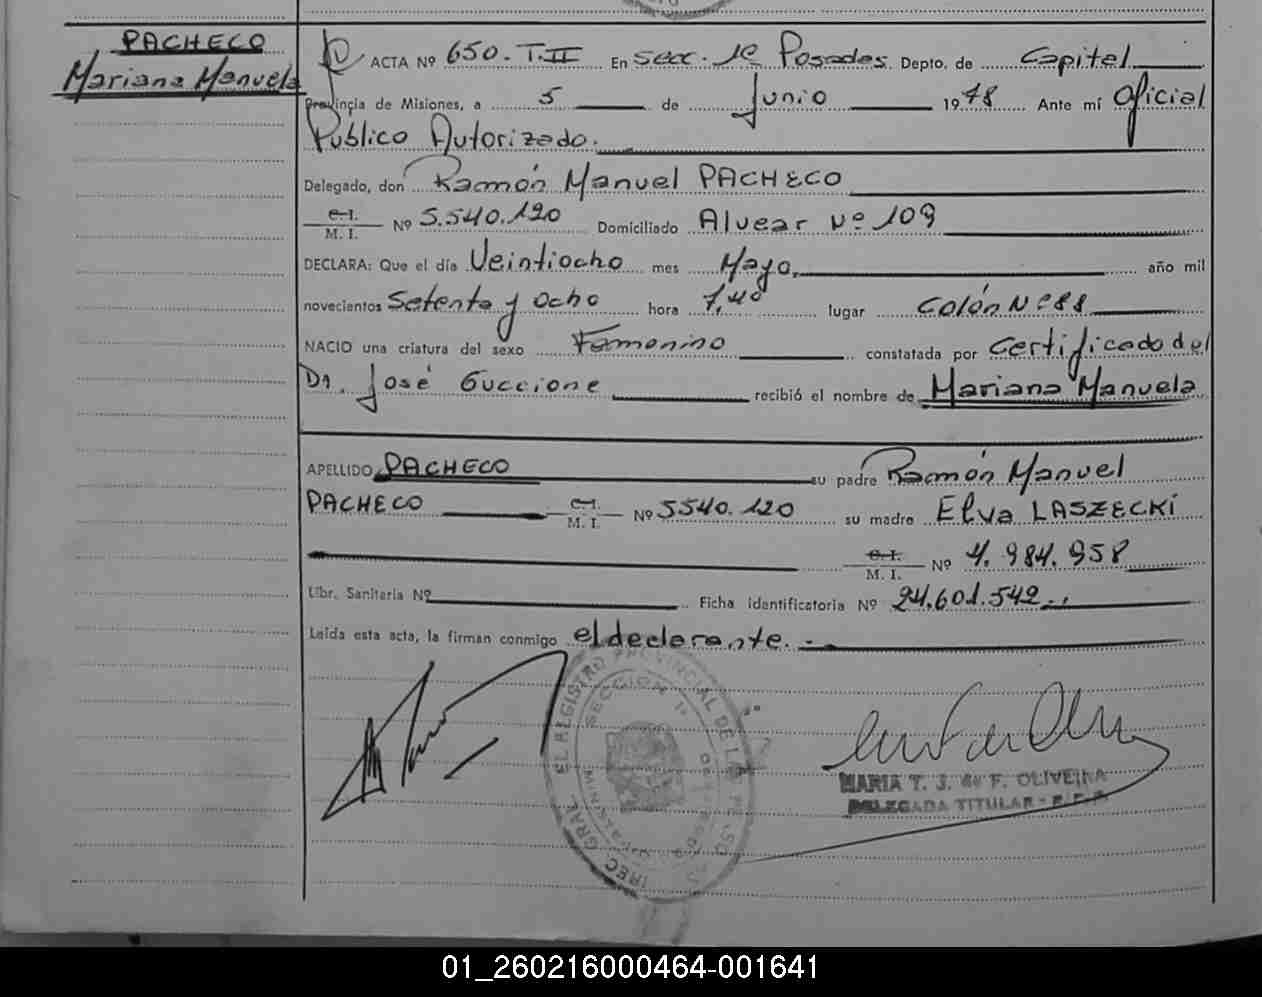 PACHECO
Mariana Manuela
ACTA Nº 650. T.II En Secc. 1º Posadas Depto. de Capital
Provincia de Misiones, a 5 de Junio 1978 Ante mí Oficial
Público Autorizado.
Delegado, don Ramón Manuel PACHECO
C.I. M.I. Nº 5.540.120 Domiciliado Alvear Nº 109
DECLARA: Que el día Veintiocho mes Mayo, año mil
novecientos Setenta y Ocho hora 7,40 lugar Colón Nº 88
NACIO una criatura del sexo Femenino constatada por Certificado del
Dr. José Guccione recibió el nombre de Mariana Manuela
APELLIDO PACHECO su padre Ramón Manuel
PACHECO C.I. M.I. Nº 5540.120 su madre Elva LASZECKI
C.I. M.I. Nº 4.984.958
Libr. Sanitaria Nº Ficha identificatoria Nº 24.601.542..
Leída esta acta, la firman conmigo el declarante. -
REGISTRO PROVINCIAL DE LAS PERSONAS
SECCION 1ª
MARIA T. J. de F. OLIVEIRA
DELEGADA TITULAR - R.P.P.
01_260216000464-001641